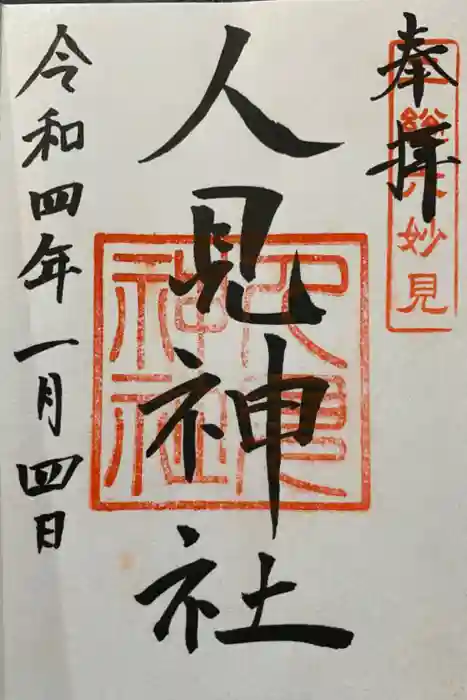 奉拝
妙見
人見神社
人見
神社
令和四年一月四日